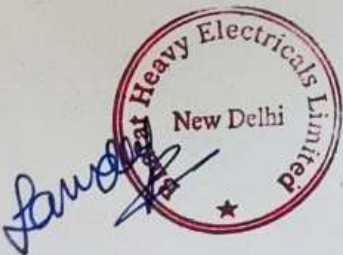 Bharat Heavy Electricals Limited
New Delhi